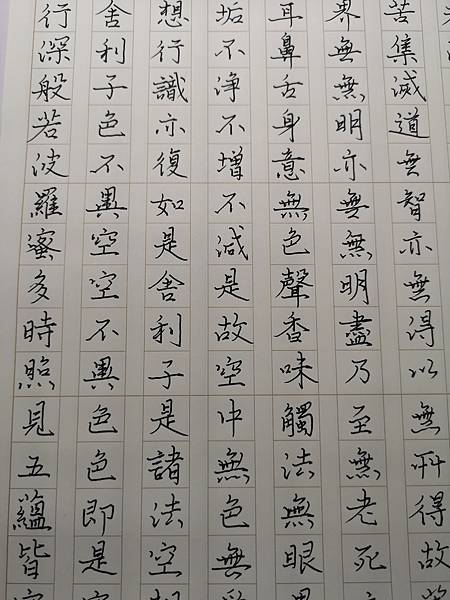 行深般若波羅蜜多時照見五蘊皆空
舍利子色不異空空不異色色即是空
想行識亦復如是舍利子是諸法空相
垢不淨不增不減是故空中無色無受
耳鼻舌身意無色聲香味觸法無眼界
界無無明亦無無明盡乃至無老死亦
苦集滅道無智亦無得以無所得故菩